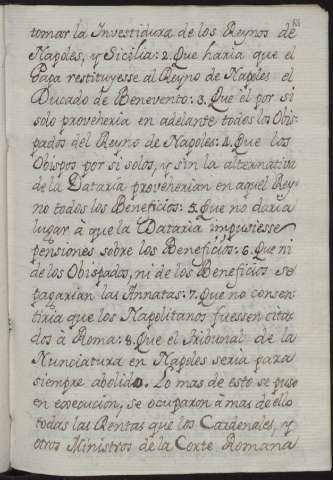 tomar la Investidura de los Reynos de
Napoles, y Sicilia: 2. Que haria que el
Papa restituyesse al Reyno de Napoles el
Ducado de Benevento: 3. Que èl por si
solo proveheria en adelante todos los Obis-
pados del Reyno de Napoles: 4. Que los
Obispos por si solos, y sin la alternativa
de la Dataria proveherian en aquel Rey-
no todos los Beneficios: 5. Que no daria
lugar à que la Dataria impusiesse
pensiones sobre los Beneficios: 6. Que ni
de los Obispados, ni de los Beneficios se
pagarian las Annatas: 7. Que no consen-
tiria que los Napolitanos fuessen cita-
dos à Roma: 8. Que el Tribunal de la
Nunciatura en Napoles seria para
siempre abolido. Lo mas de esto se puso
en execucion, se ocuparon à mas de ello
todas las Rentas que los Cardenales, y
otros Ministros de la Corte Romana